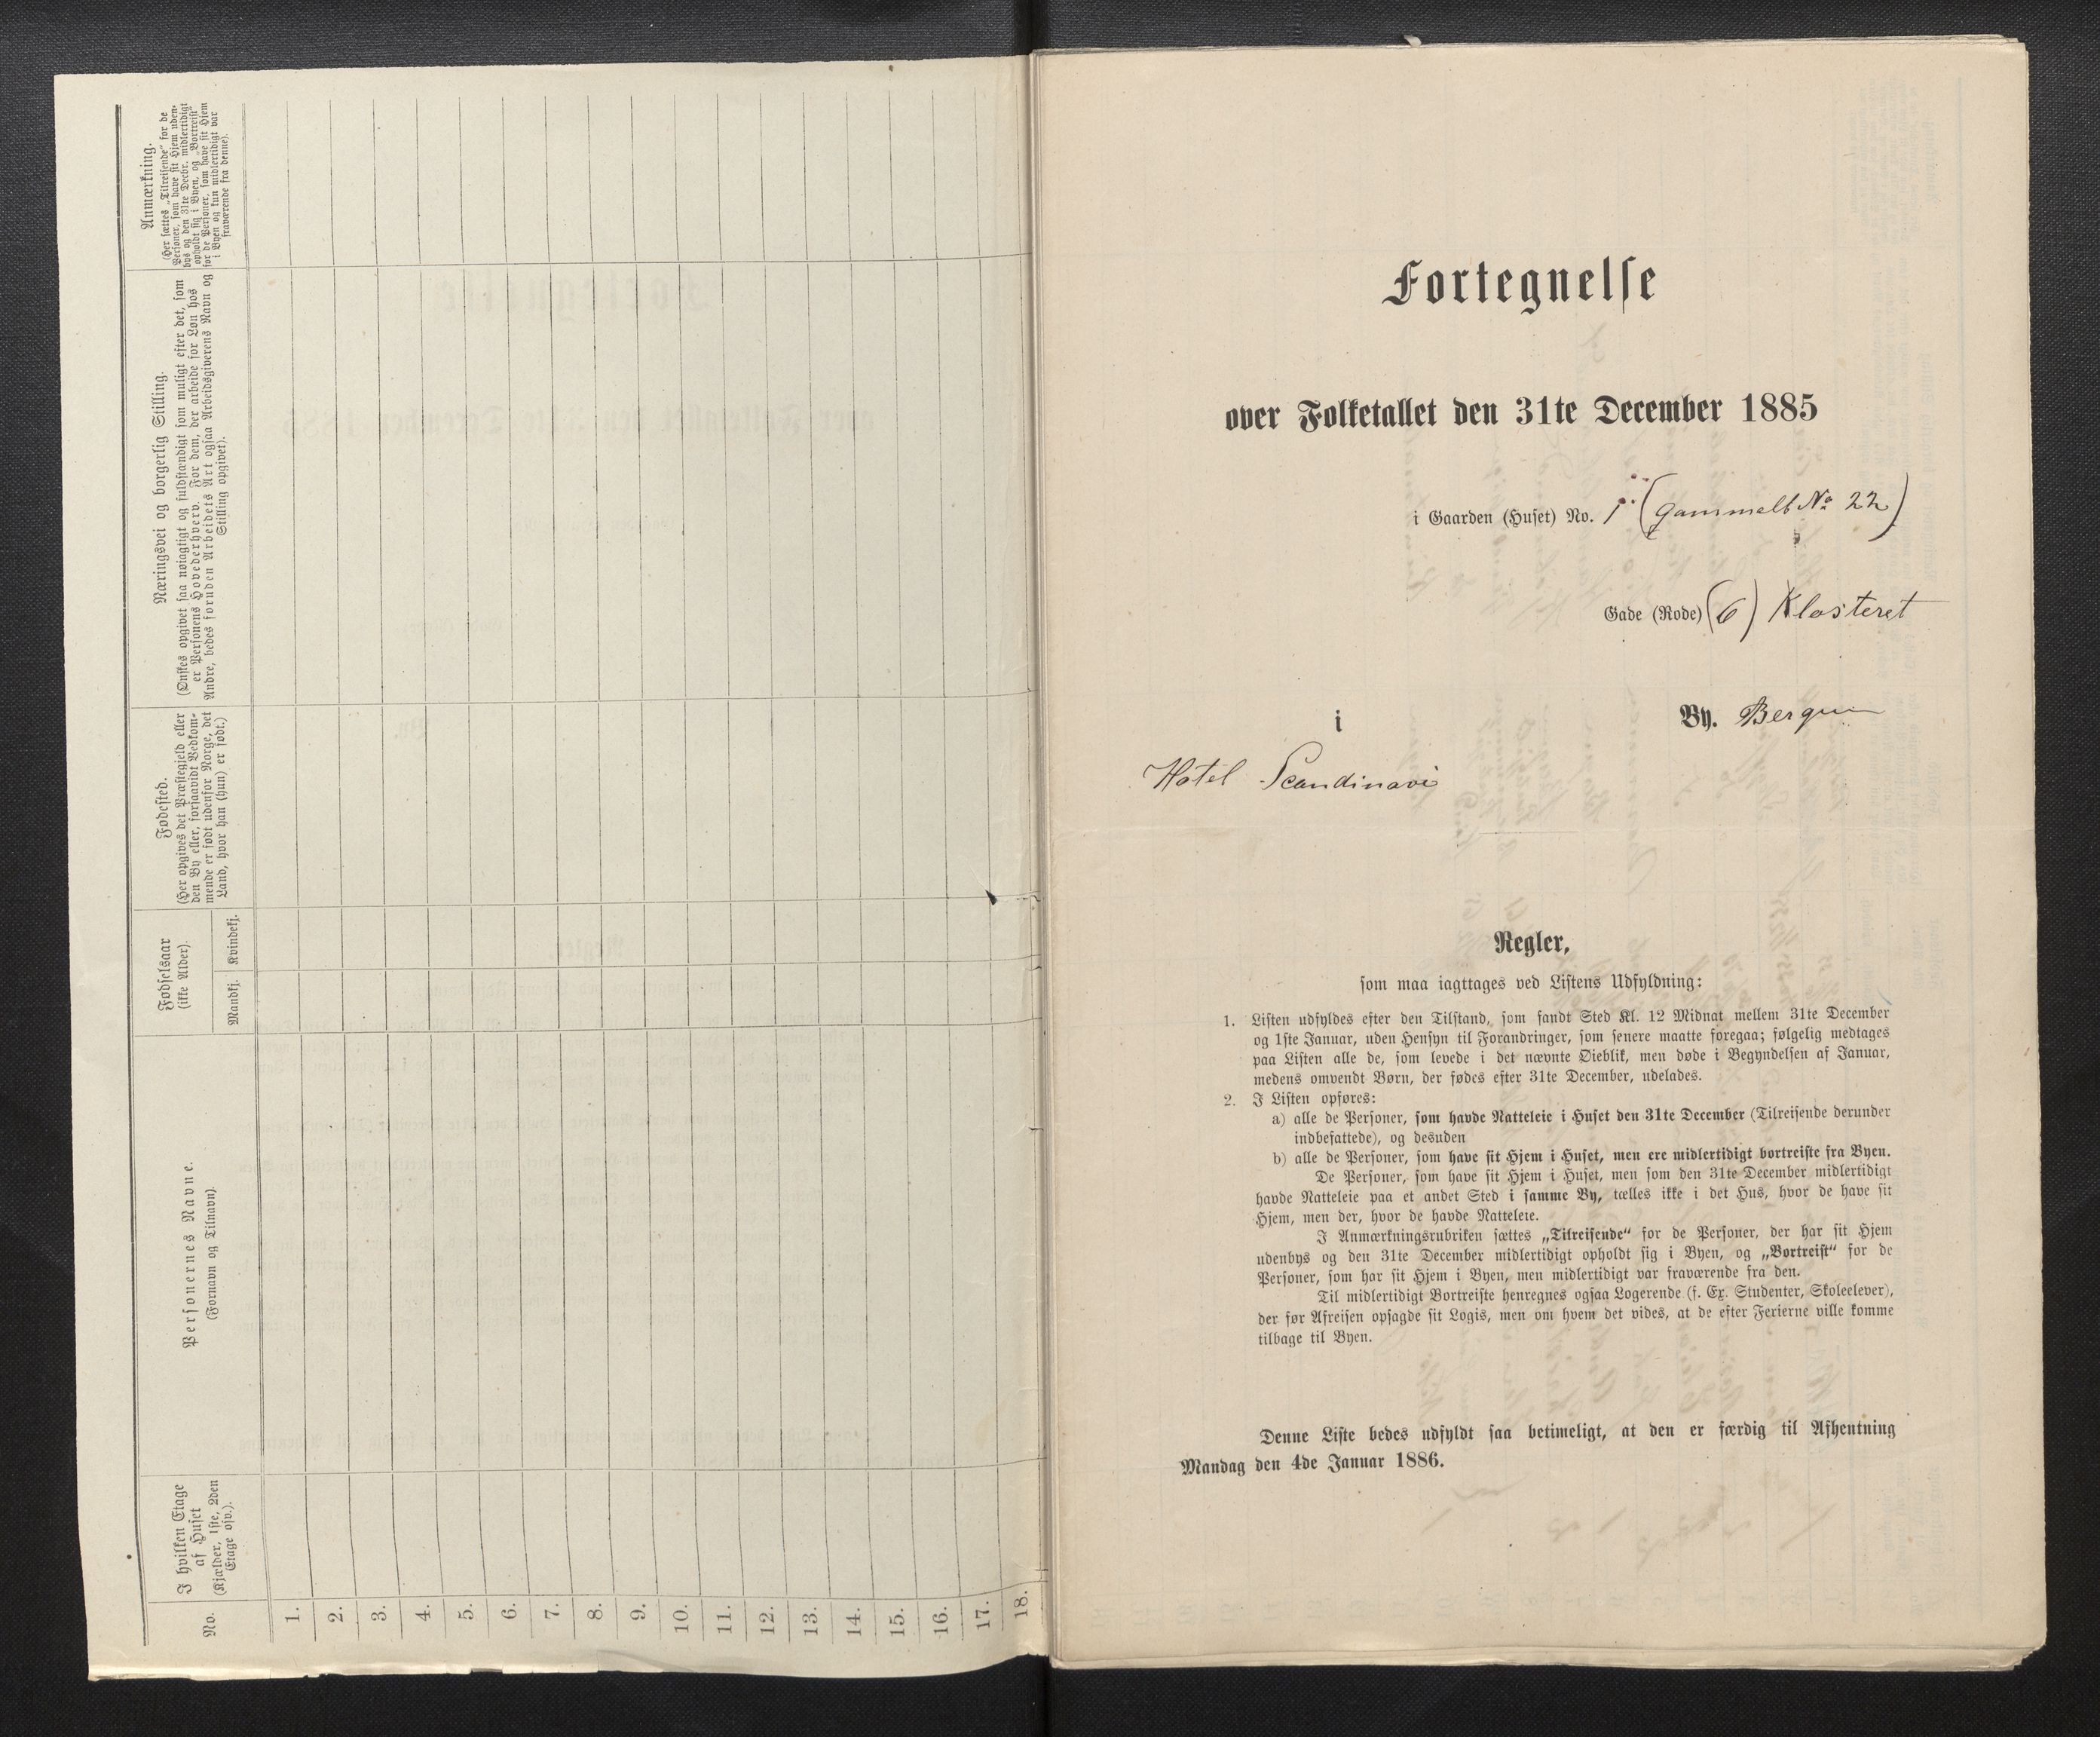 No.
I hvilken Etage
af Huset
(Kjælder, 1ste, 2den
Etage osv.).
Personernes Navne.
(Fornavn og Tilnavn).
Fødselsaar
(ikke Alder).
Mandkj.
Kvindekj.
Fødested.
(Her opgives det Præstegjeld eller
den By eller, forsaavidt Vedkom-
mende er født udenfor Norge, det
Land, hvor han (hun) er født.)
Næringsvei og borgerlig Stilling.
(Ønskes opgivet saa nøiagtigt og fuldstændigt som muligt efter det, som
er Personens Hovederhverv. For dem, der arbeide for Løn hos
Andre, bedes foruden Arbeidets Art ogsaa Arbeidsgiverens Navn og
Stilling opgivet).
Anmærkning.
(Her sættes „Tilreisende“ for de
Personer, som have sit Hjem uden-
bys og den 31te Decbr. midlertidigt
opholdt sig i Byen, og „Bortreist“
for de Personer, som have sit Hjem
i Byen og kun midlertidigt var
fraværende fra denne).
1.
2.
3.
4.
5.
6.
7.
8.
9.
10.
11.
12.
13.
14.
15.
16.
17.
18.
Fortegnelse
over Folketallet den 31te December 1885
i Gaarden (Huset) No. 1 (gammelt No 22)
Gade (Rode) (6) Klosteret
i By. Bergen
Hotel Scandinavi
Regler,
som maa iagttages ved Listens Udfyldning:
1. Listen udfyldes efter den Tilstand, som fandt Sted Kl. 12 Midnat mellem 31te December
og 1ste Januar, uden Hensyn til Forandringer, som senere maatte foregaa; følgelig medtages
paa Listen alle de, som levede i det nævnte Øieblik, men døde i Begyndelsen af Januar,
medens omvendt Børn, der fødes efter 31te December, udelades.
2. I Listen opføres:
a) alle de Personer, som havde Natteleie i Huset den 31te December (Tilreisende derunder
indbefattede), og desuden
b) alle de Personer, som have sit Hjem i Huset, men ere midlertidigt bortreiste fra Byen.
De Personer, som have sit Hjem i Huset, men som den 31te December midlertidigt
havde Natteleie paa et andet Sted i samme By, tælles ikke i det Hus, hvor de have sit
Hjem, men der, hvor de havde Natteleie.
I Anmærkningsrubriken sættes „Tilreisende“ for de Personer, der har sit Hjem
udenbys og den 31te December midlertidigt opholdt sig i Byen, og „Bortreist“ for de
Personer, som har sit Hjem i Byen, men midlertidigt var fraværende fra den.
Til midlertidigt Bortreiste henregnes ogsaa Logerende (f. Ex. Studenter, Skoleelever),
der før Afreisen opsagde sit Logis, men om hvem det vides, at de efter Ferierne ville komme
tilbage til Byen.
Denne Liste bedes udfyldt saa betimeligt, at den er færdig til Afhentning
Mandag den 4de Januar 1886.